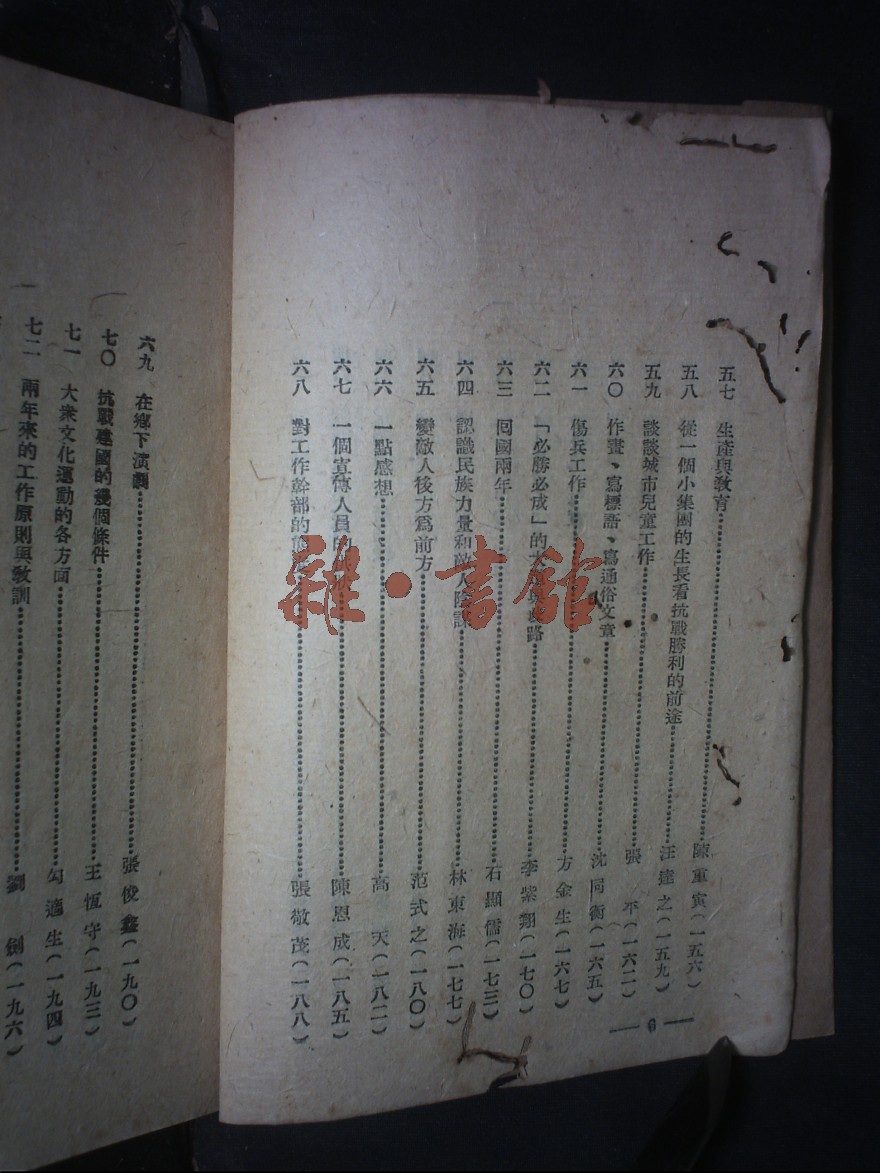 五七 生產與教育……陳重寅(一五六)
五八 從一個小集團的生長看抗戰勝利的前途……汪達之(一五九)
五九 談談城市兒童工作……張 平(一六二)
六〇 作畫、寫標語、寫通俗文章……沈同衡(一六五)
六一 傷兵工作……方金生(一六七)
六二 「必勝必成」的 路……李紫翔(一七〇)
六三 囘國兩年……石顯儒(一七三)
六四 認識民族力量和敵人陰謀……林東海(一七七)
六五 變敵人後方爲前方……范式之(一八〇)
六六 一點感想……高 天(一八二)
六七 一個宣傳人員的 ……陳恩成(一八五)
六八 對工作幹部的 ……張敬茂(一八八)
— 6 —
六九 在鄉下演劇……張俊鑫(一九〇)
七〇 抗戰建國的幾個條件……王恆守(一九三)
七一 大衆文化運動的各方面……勾適生(一九四)
七二 兩年來的工作原則與教訓……劉 劍(一九六)
雜·書館